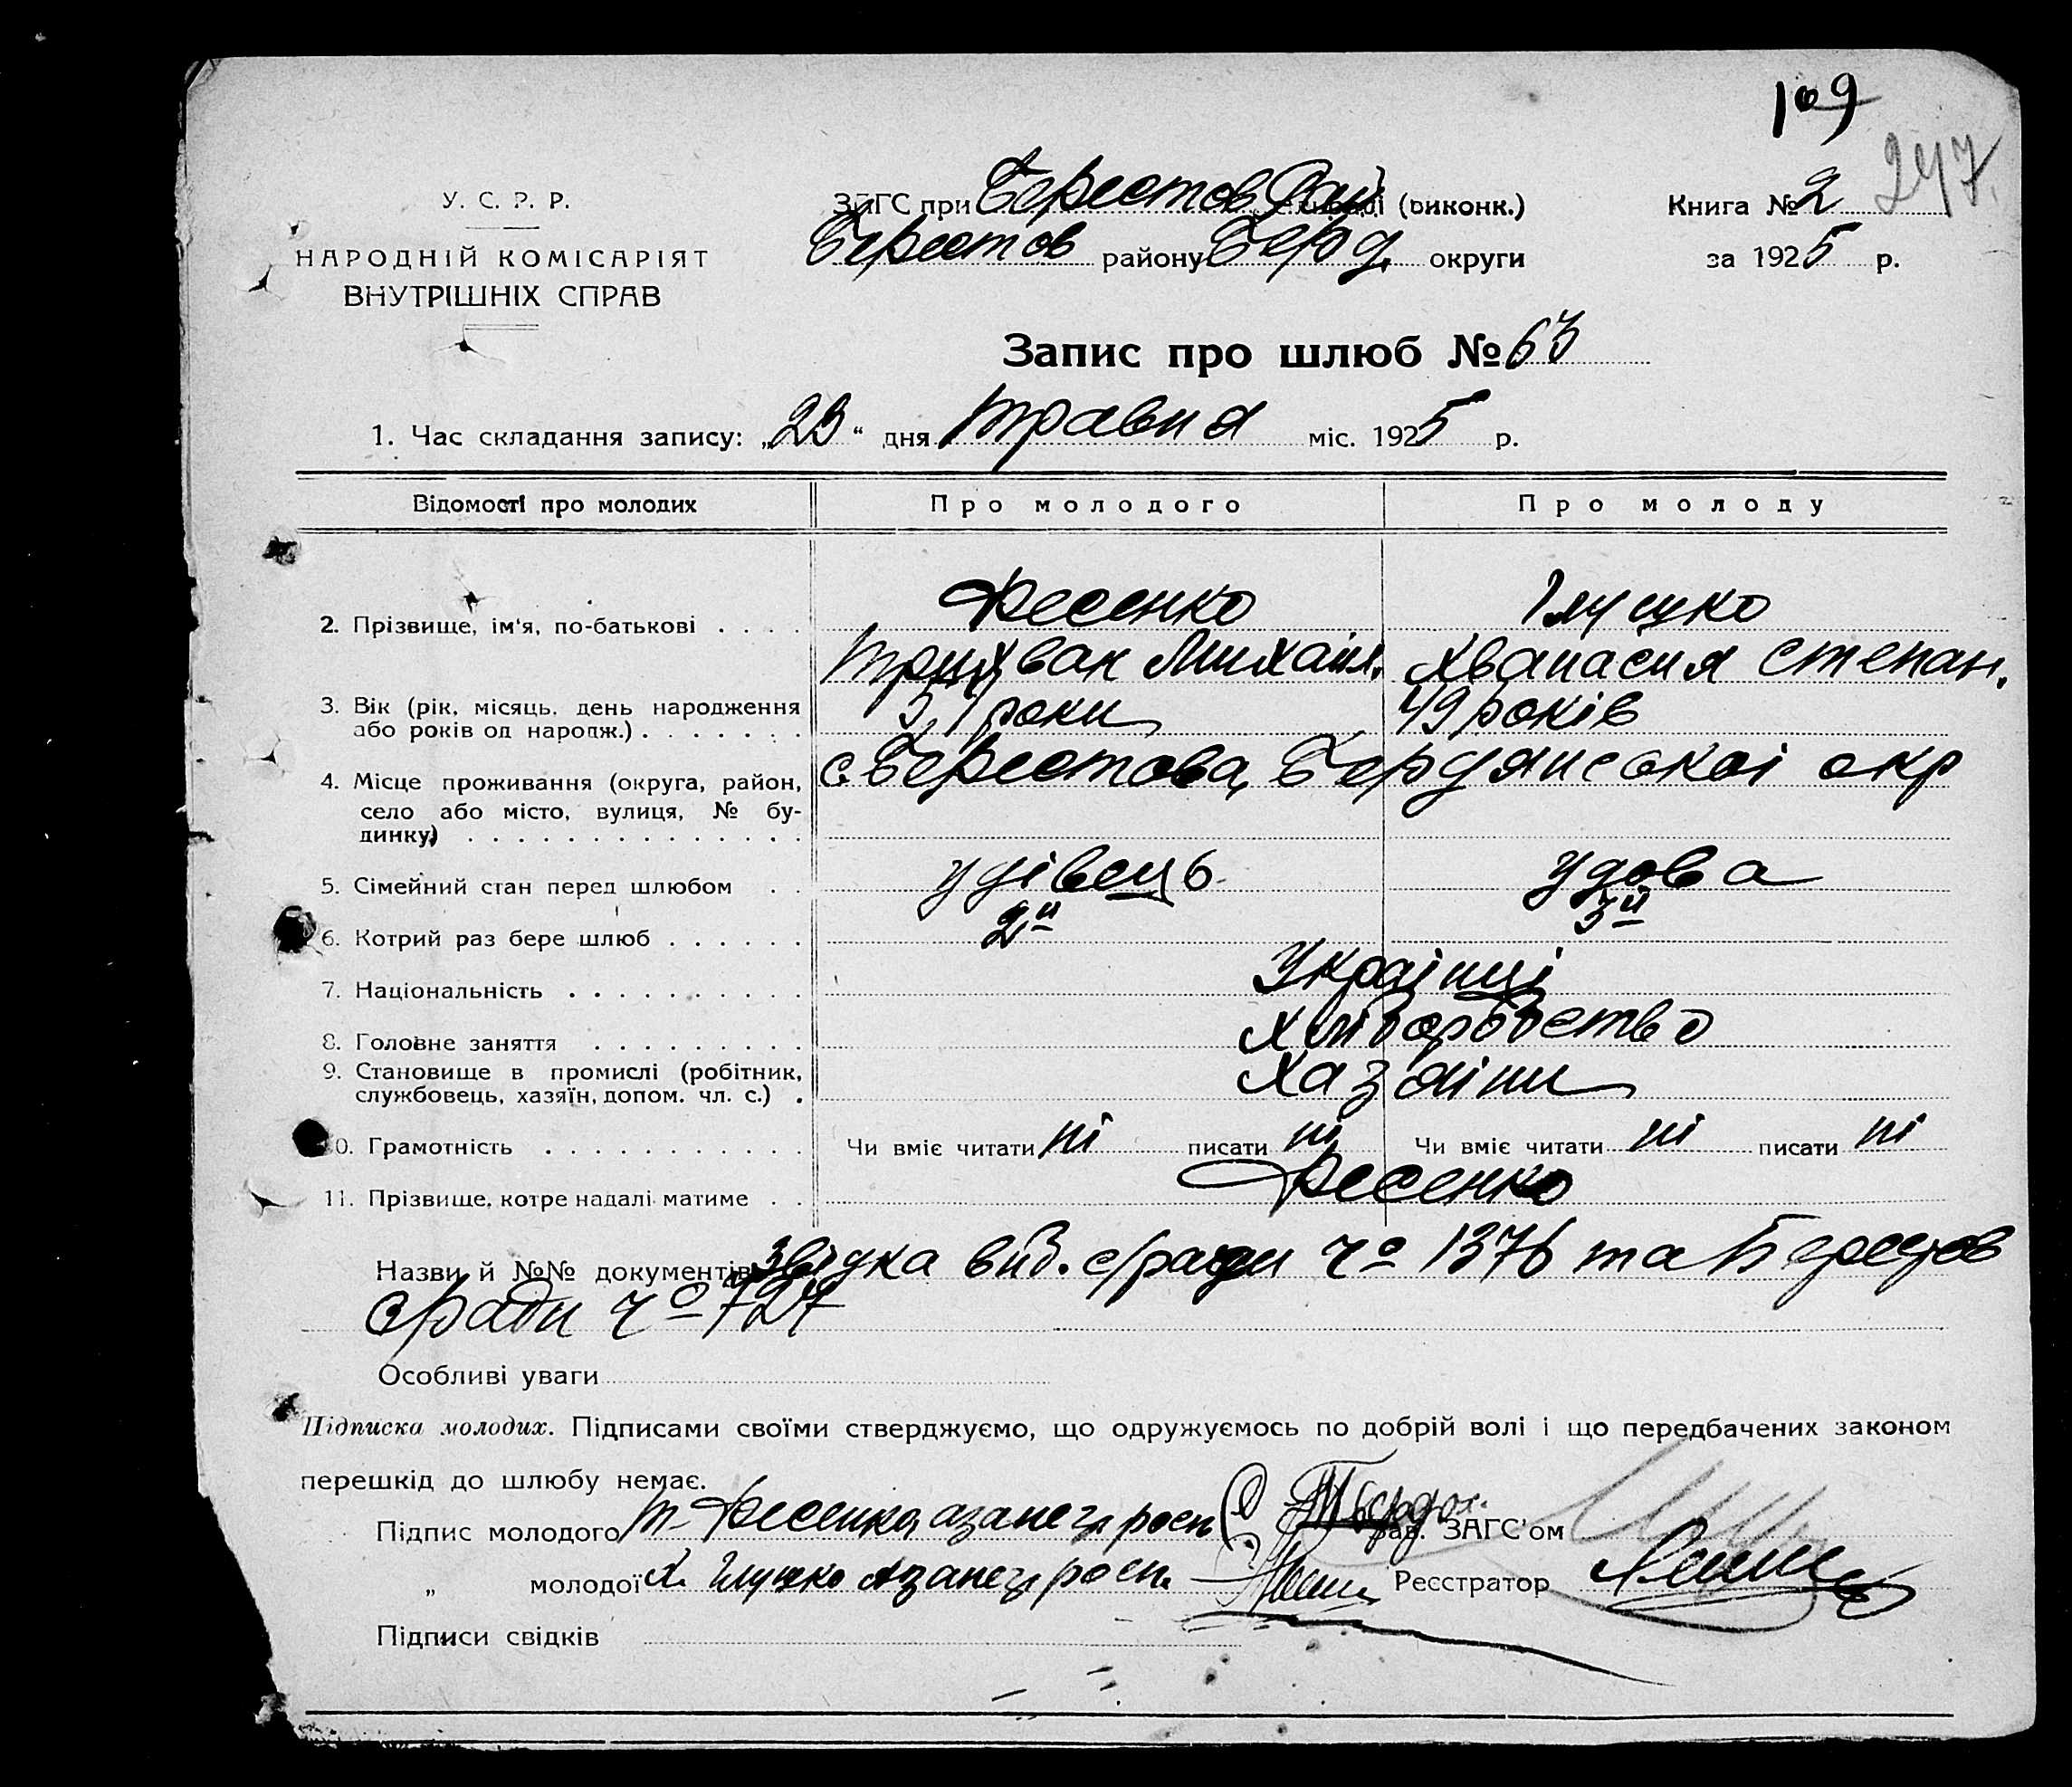 109
247.
У. С. Р. Р.
НАРОДНІЙ КОМІСАРІЯТ
ВНУТРІШНІХ СПРАВ
ЗАГС при Берестов Рай (виконк.)
Берестов району Берд. округи
Книга № 2
за 1925 р.
Запис про шлюб № 63
1. Час складання запису: „23“ дня травня міс. 1925 р.
Відомості про молодих Про молодого Про молоду
Фесенко Глушко
2. Прізвище, ім'я, по-батькові . . . . Михайл. Хванасия Степан.
3. Вік (рік, місяць, день народження роки 49 років
або років од народж.) . . . . . . .
4. Місце проживання (округа, район, с. Берестова, Бердянськоі окр
село або місто, вулиця, № бу-
динку) . . . . . . . . . . . . . .
5. Сімейний стан перед шлюбом . . удівець удова
6. Котрий раз бере шлюб . . . . . . 2й 3й
7. Національність . . . . . . . . . . Украінці
8. Головне заняття . . . . . . . . . Хліборобство
9. Становище в промислі (робітник, Хазяіни
службовець, хазяїн, допом. чл. с.) .
10. Грамотність . . . . . . . . . . . Чи вміє читати ні писати ні Чи вміє читати ні писати ні
11. Прізвище, котре надалі матиме . . Фесенко
Назви й №№ документів звідка вид. с/ради чо 1376 та Берестов
с/ради чо 727
Особливі уваги
Підписка молодих. Підписами своїми стверджуємо, що одружуємось по добрій волі і що передбачених законом
перешкід до шлюбу немає.
Підпис молодого Т. Фесенко, а за нег росп Зав. ЗАГС'ом
„ молодої Х. Глушко а за неі росп. Реєстратор
Підписи свідків